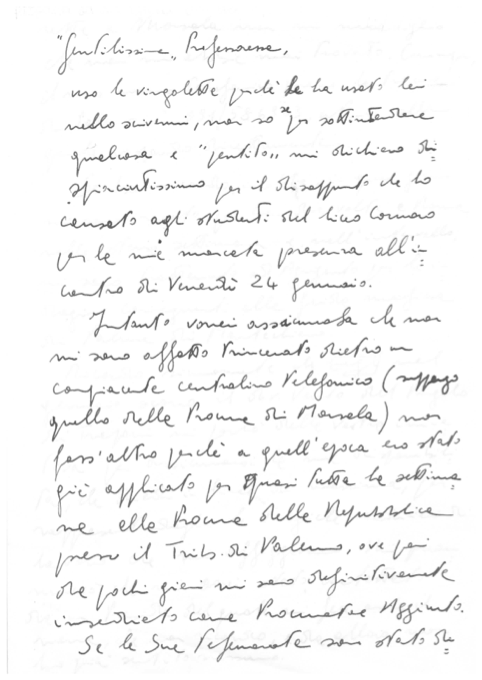 "Gentilissima" Professoressa,
uso le virgolette perché le ha usato lei
nello scrivermi, non so se per sottintendere
qualcosa e "pentito" mi dichiaro di=
spiaciutissimo per il disappunto che ho
causato agli studenti del liceo Cornaro
per la mia mancata presenza all'in=
contro di Venerdì 24 gennaio.
Intanto vorrei assicurarla che non
mi sono affatto trincerato dietro un
compiacente centralino telefonico (suppongo
quello della Procura di Marsala) non
foss'altro perché a quell'epoca ero stato
già applicato per quasi tutta la settima=
na alla Procura della Repubblica
presso il Trib. di Palermo, ove poi
da pochi giorni mi sono definitivamente
insediato come Procuratore Aggiunto.
Se le Sue telefonate sono state di